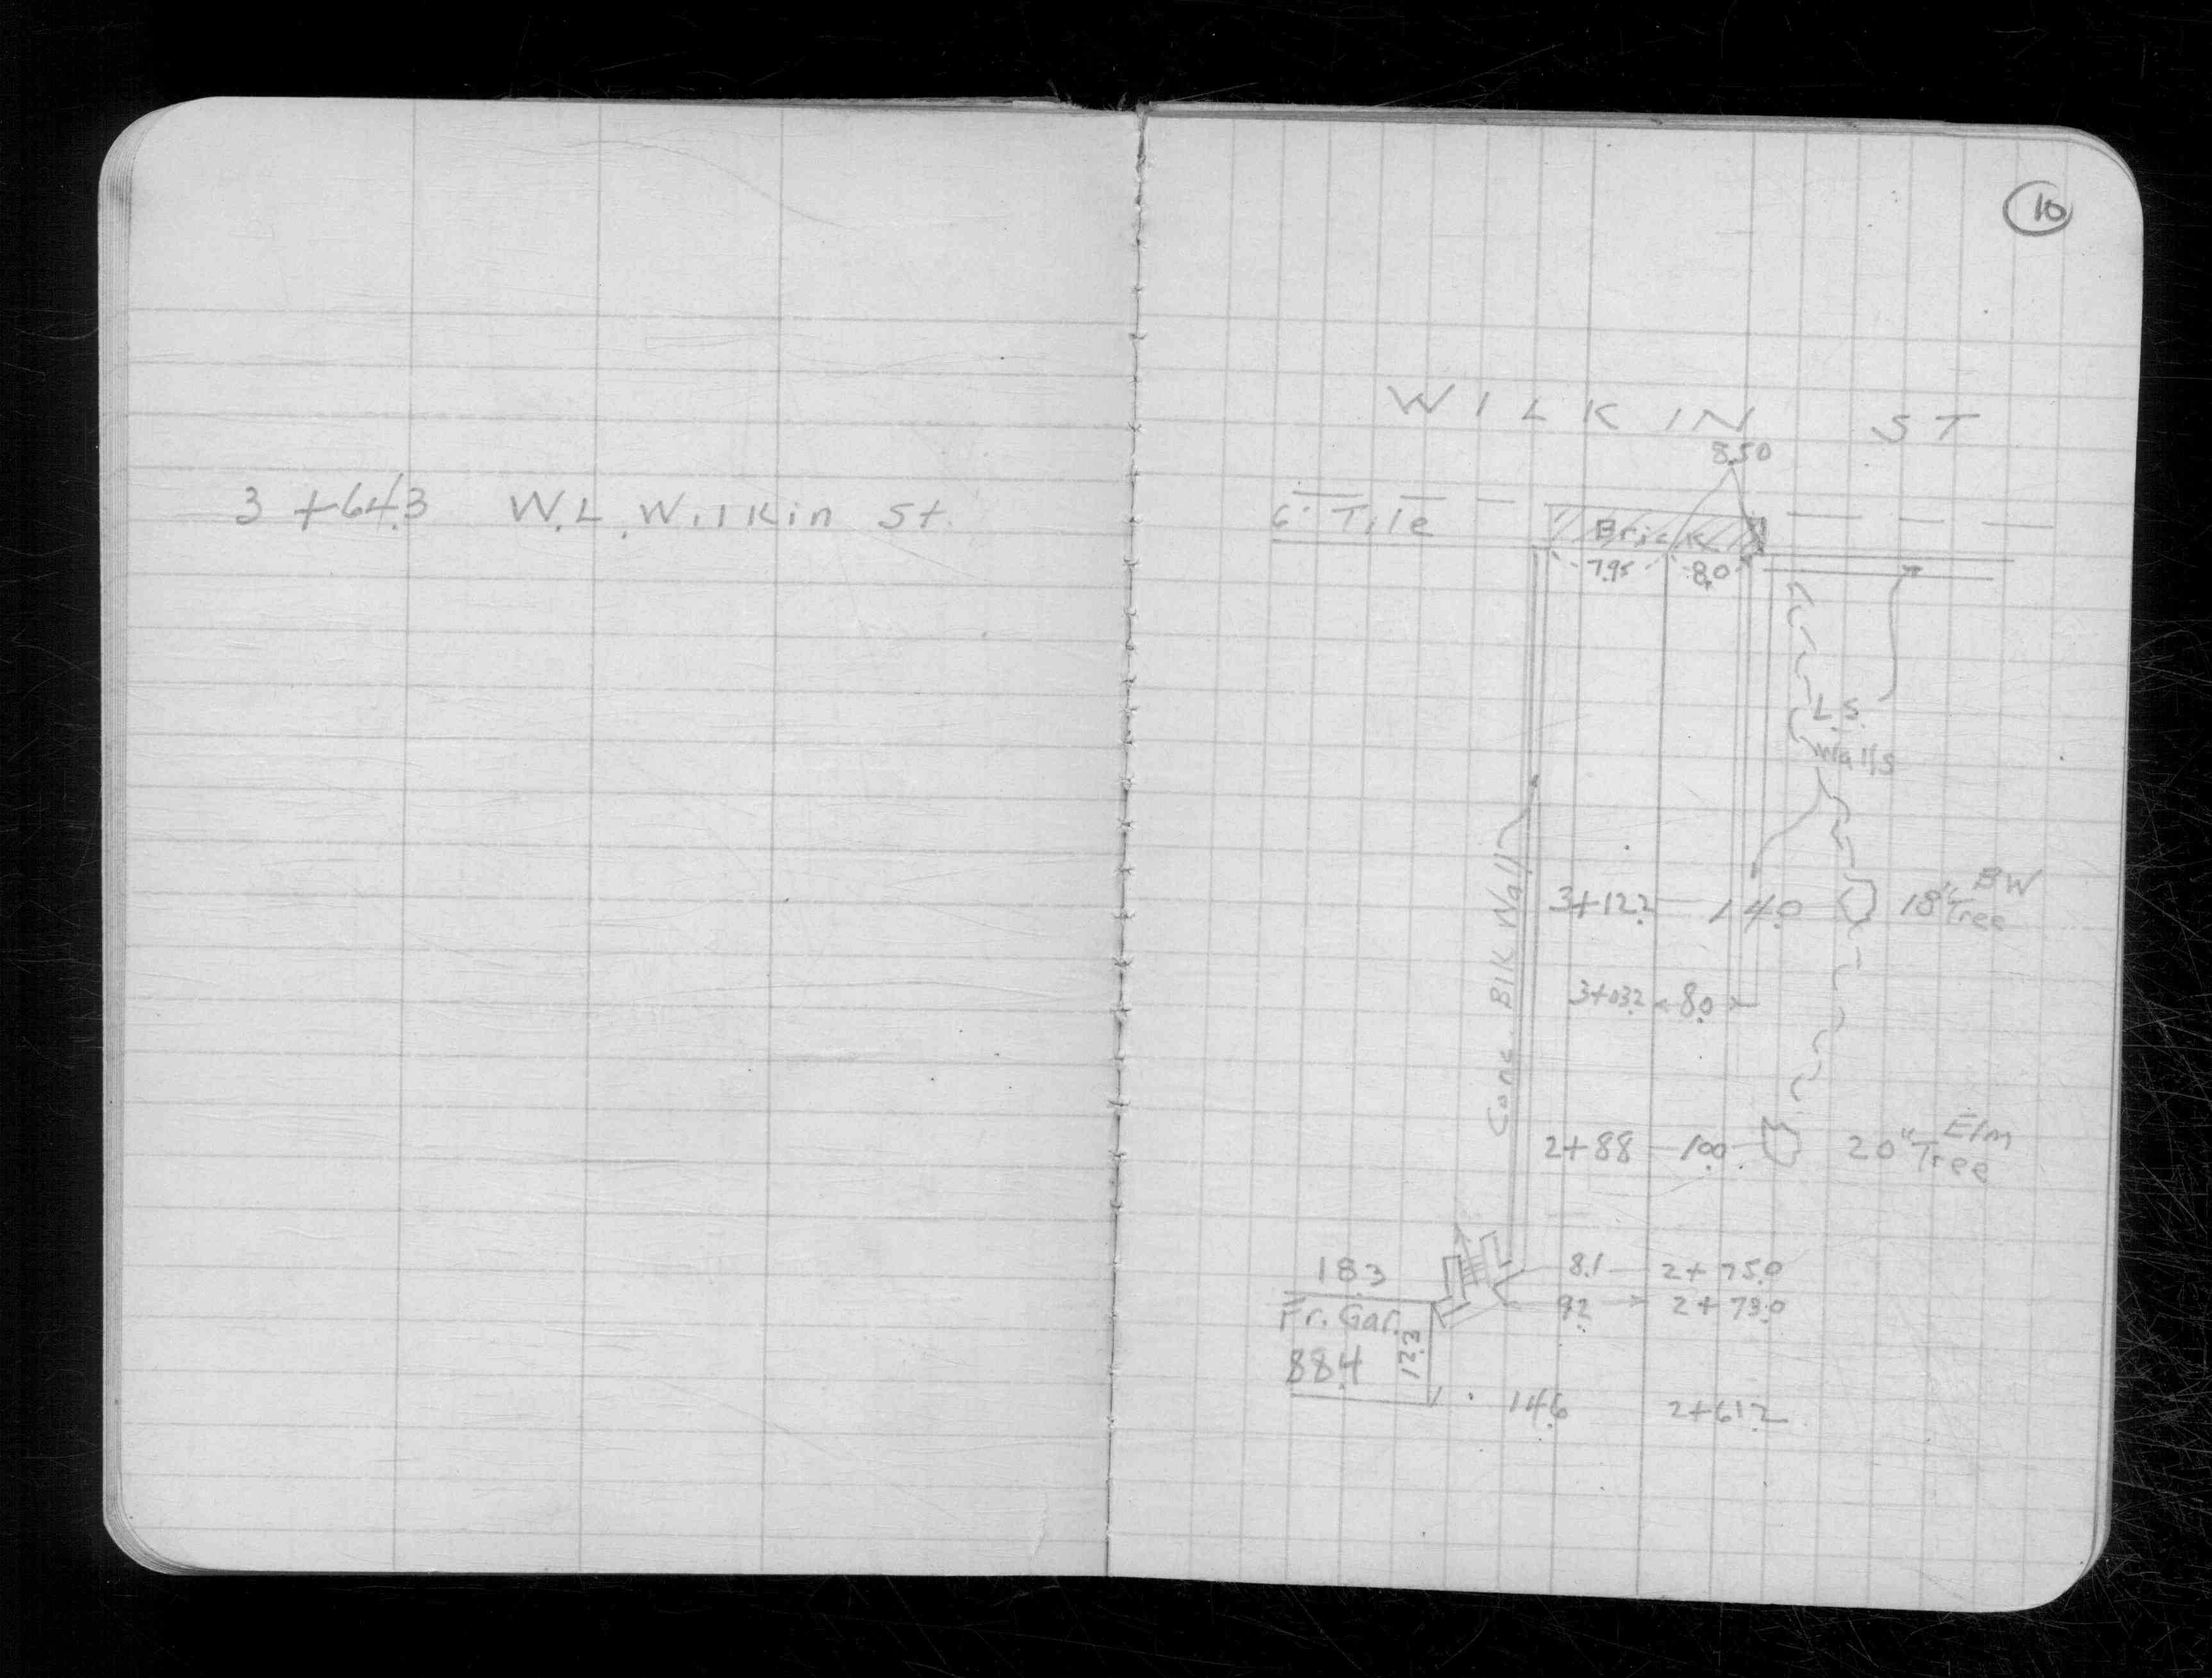 3 + 64.3 W.L. Wilkin St.
10
WILKIN ST
8.50
6" Tile
Brick
7.95 8.0
L.S.
Walls
Conc. Blk Wall
3+12.2 14.0 18" BW Tree
3+03.2 8.0
2+88 10.0 20" Elm Tree
18.3
8.1 2+75.0
Fr. Gar. 9.2 2+73.0
884 12.3
14.6 2+61.2